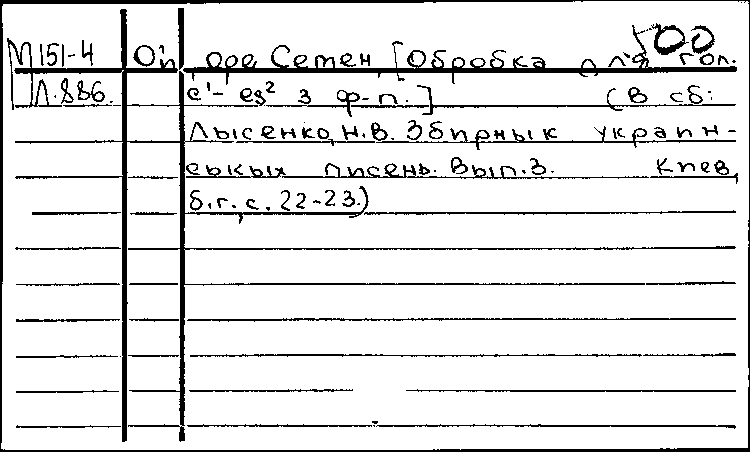 500
М151-4 Ой, оре Семен, [Обробка для гол.
Л.886. c¹- es² з ф-п.] (В сб:
Лысенко, Н.В. Збирнык украин-
ськых писень. Вып.3. Киев,
б.г., с. 22-23.)